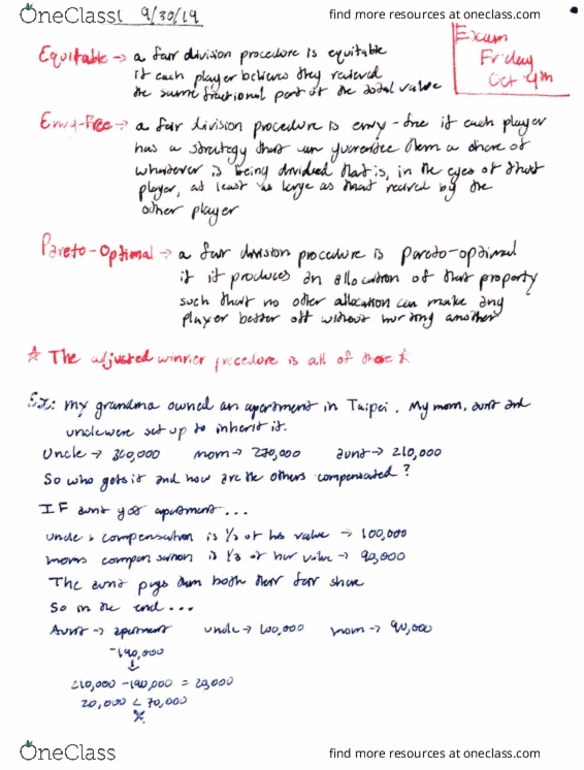 OneClass find more resources at oneclass.com
9/30/19
Exam
Friday
Oct 4th
Equitable → a fair division procedure is equitable
if each player believes they recieved
the same fractional part of the total value
Envy-Free → a fair division procedure is envy-free if each player
has a strategy that can guarentee them a share of
whatever is being divided that is, in the eyes of that
player, at least as large as that recived by the
other player
Pareto-Optimal → a fair division procedure is pareto-optimal
if it produces an allocation of that property
such that no other allocation can make any
player better off without hurting another
☆ The adjusted winner procedure is all of these ☆
Ex: my grandma owned an apartment in Taipei. My mom, aunt and
uncle were set up to inherit it.
Uncle → 300,000 mom → 270,000 aunt → 210,000
So who gets it and how are the others compensated?
IF aunt got apartment...
uncle's compensation is 1/3 of his value → 100,000
moms compensation is 1/3 of her value → 90,000
The aunt pays them both their fair share
So in the end...
Aunt → apartment uncle → 100,000 mom → 90,000
-190,000
↓
210,000 - 190,000 = 20,000
20,000 < 70,000
OneClass find more resources at oneclass.com